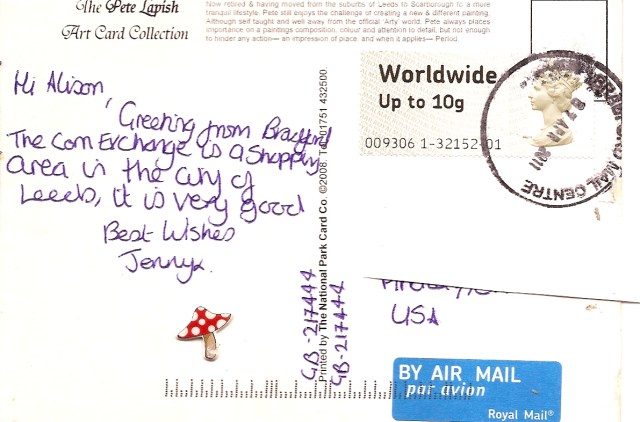 The Pete Lapish
Art Card Collection
Now retired & having moved from the suburbs of Leeds to Scarborough to a more
tranquil lifestyle. Pete still enjoys the challenge of creating a new & different painting.
Although self taught and well away from the official 'Arty' world. Pete always places
importance on a paintings composition, colour and attention to detail, but not enough
to hinder any action— an impression of place, and when it applies— Period.
Hi Alison,
Greeting from Bradford
The Corn Exchange is a shopping
area in the city of
Leeds, it is very good
Best Wishes
Jennyx.
Printed by The National Park Card Co. ©2008. Tel. 01751 432500
GB-217444
GB-217444
Worldwide
Up to 10g
009306 1-32152-01
MAIL CENTRE
USA
BY AIR MAIL
par avion
Royal Mail®